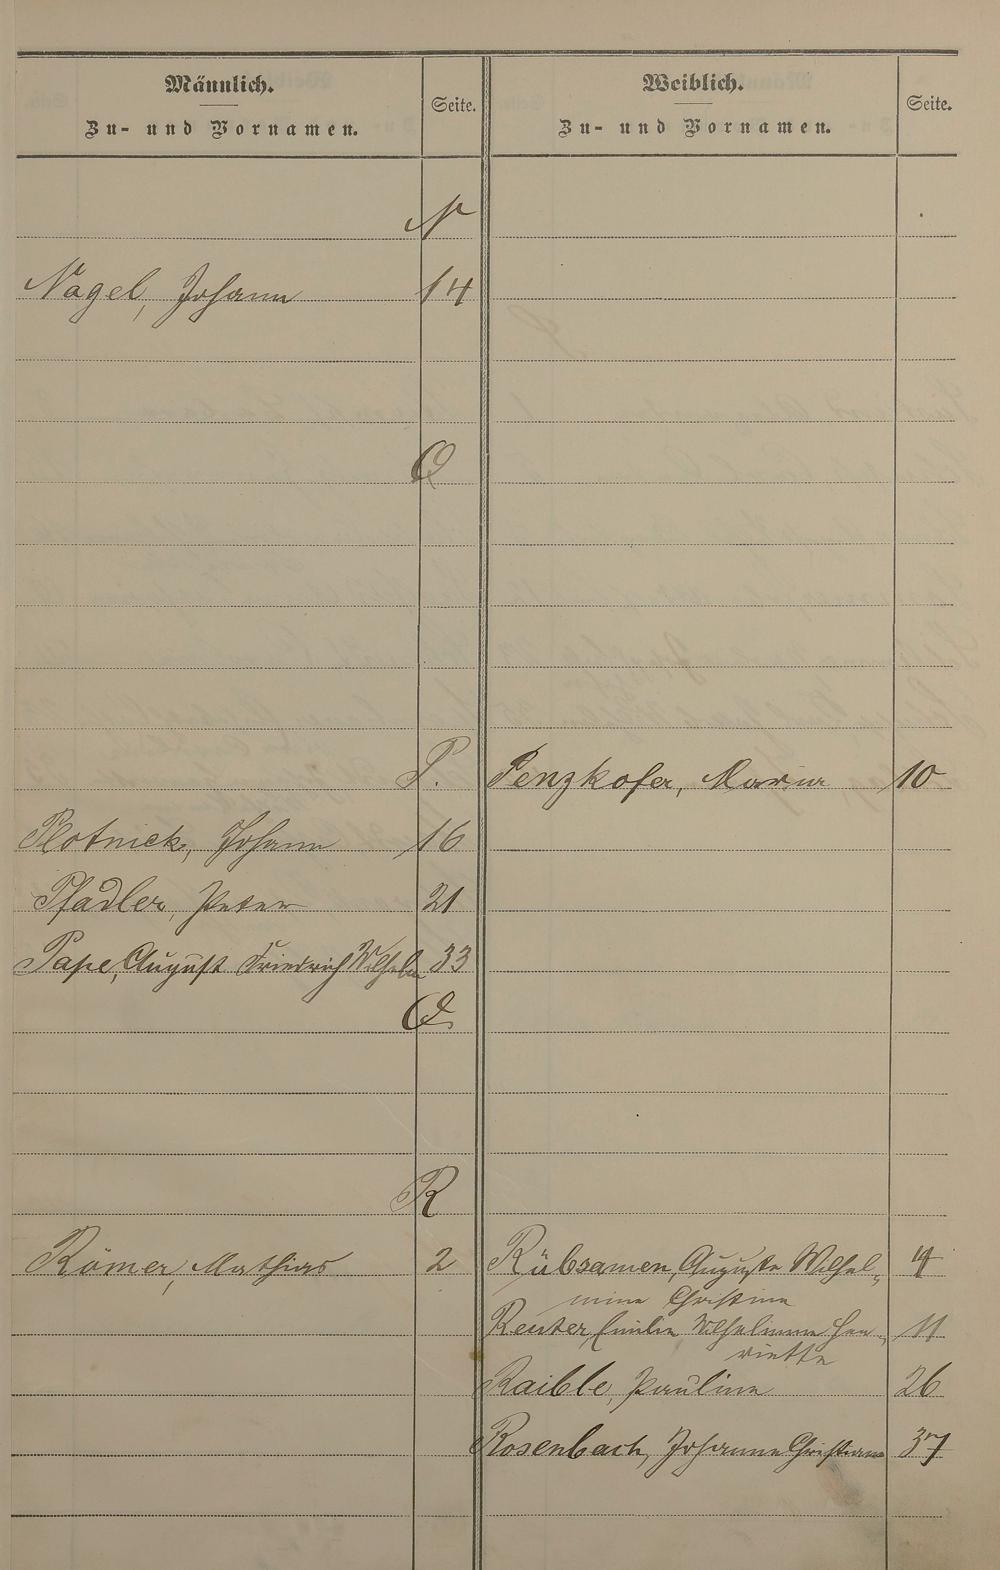 Männlich.
Zu- und Vornamen.
Seite.
Weiblich.
Zu- und Vornamen.
Seite.
N
Nagel, Johann 14
O
P. Penzkofer, Maria 10
Plotnick, Johann 16
Pfadler, Peter 21
Pape, August Friedrich Wilhelm 33
Q
R
Römer, Mathias 2 Rübsamen, Auguste Wilhel- 4
mine Christine
Reuter, Emilie Wilhelmine Hen- 11
riette
Raible, Pauline 26
Rosenbach, Johanne Christiane 37